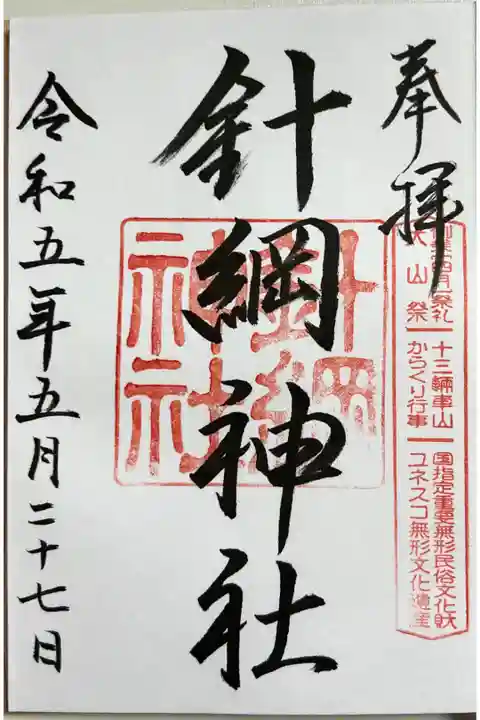 奉拝
犬山祭
四月 祭礼
十三輛車山
からくり行事
国指定重要無形民俗文化財
ユネスコ無形文化遺産
針綱神社
針綱
神社
令和五年五月二十七日